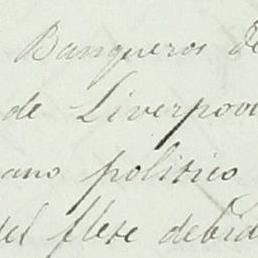 Banqueros de
de Liverpoo
ano politico
del flete debid